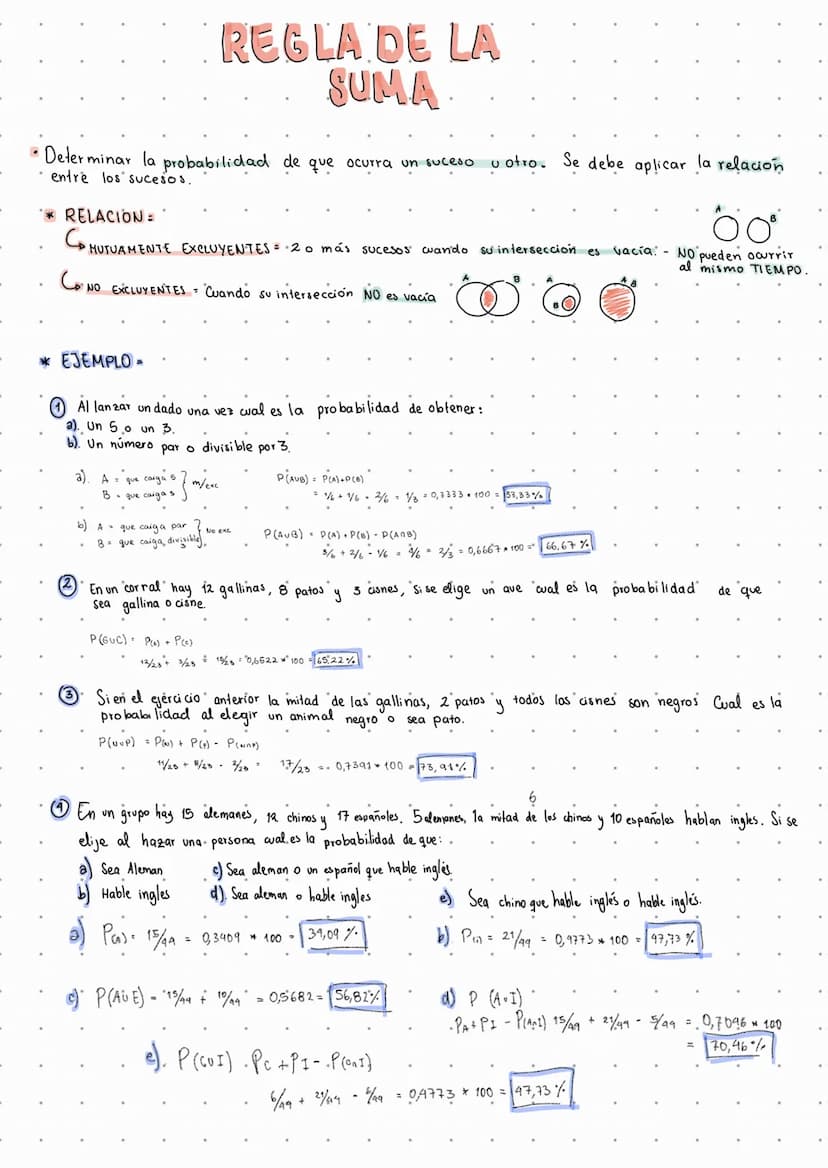 REGLA DE LA
SUMA
• Determinar la probabilidad de que ocurra un suceso u otro. Se debe aplicar la relación
entre los sucesos.
* RELACION:
A B
↳ MUTUAMENTE EXCLUYENTES = 2 o más sucesos cuando su intersección es vacía. - NO pueden ocurrir
al mismo TIEMPO.
↳ NO EXCLUYENTES = Cuando su intersección NO es vacía
A B A B A B
* EJEMPLO =
① Al lanzar un dado una vez cual es la probabilidad de obtener:
a). Un 5 o un 3.
b). Un número par o divisible por 3.
a). A = que caiga 5 } m/exc
B = que caiga 3
P(AUB) = P(A)+P(B)
= 1/6 + 1/6 = 2/6 = 1/3 = 0,3333 * 100 = 33,33%
b) A = que caiga par } No exc
B = que caiga divisible
P(AUB) = P(A) + P(B) - P(A∩B)
3/6 + 2/6 - 1/6 = 4/6 = 2/3 = 0,6667 * 100 = 66,67 %
② En un corral hay 12 gallinas, 8 patos y 3 cisnes, si se elige un ave cual es la probabilidad de que
sea gallina o cisne.
P(GUC) = P(G) + P(C)
12/23 + 3/23 = 15/23 = 0,6522 * 100 = 65,22%
③ Si en el ejercicio anterior la mitad de las gallinas, 2 patos y todos los cisnes son negros Cual es la
probabilidad al elegir un animal negro o sea pato.
P(NUP) = P(N) + P(P) - P(N∩P)
11/23 + 8/23 - 2/23 = 17/23 = 0,7391 * 100 = 73,91%
6
④ En un grupo hay 15 alemanes, 12 chinos y 17 españoles. 5 alemanes, la mitad de los chinos y 10 españoles hablan ingles. Si se
elije al hazar una persona cual es la probabilidad de que:
a) Sea Aleman c) Sea aleman o un español que hable inglés
b) Hable ingles d). Sea aleman o hable ingles e) Sea chino que hable inglés o hable inglés.
a) P(A) = 15/44 = 0,3409 * 100 = 34,09 % b). P(I) = 21/44 = 0,4773 * 100 = 47,73 %
c) P(AUE) = 15/44 + 10/44 = 0,5682 = 56,82% d) P (AUI)
PA + PI - P(A∩I) 15/44 + 21/44 - 5/44 = 0,7046 * 100
= 70,46%
e). P(CUI) . PC + PI - P(C∩I)
6/44 + 21/44 - 6/44 = 0,4773 * 100 = 47,73 %